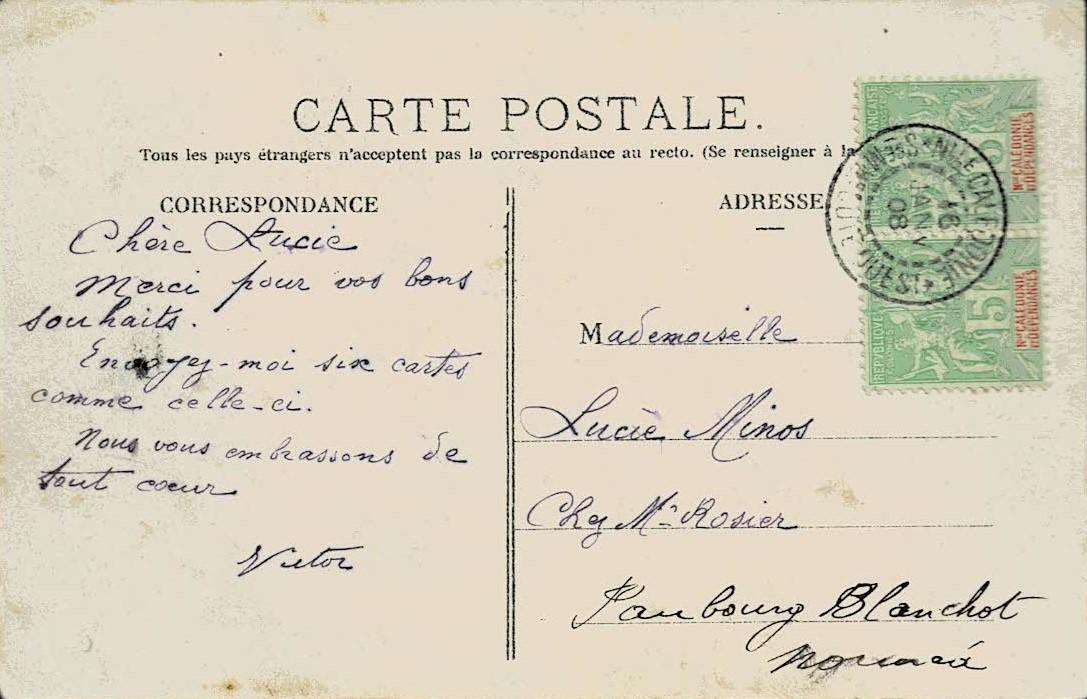 CARTE POSTALE.
Tous les pays étrangers n'acceptent pas la correspondance au recto. (Se renseigner à la
CORRESPONDANCE
Chère Lucie
Merci pour vos bons
souhaits.
Envoyez-moi six cartes
comme celle-ci.
Nous vous embrassons de
tout cœur
Victor
ADRESSE
Mademoiselle
Lucie Minos
Chez Mr Rosier
Faubourg Blanchot
Nouméa
FRANÇAISE
5
Nlle CALÉDONIE
ET DÉPENDANCES
Nlle CALEDONIE
16
JANV
08
REPUBLIQUE
COLONIES
5
Nlle CALÉDONIE
ET DÉPENDANCES